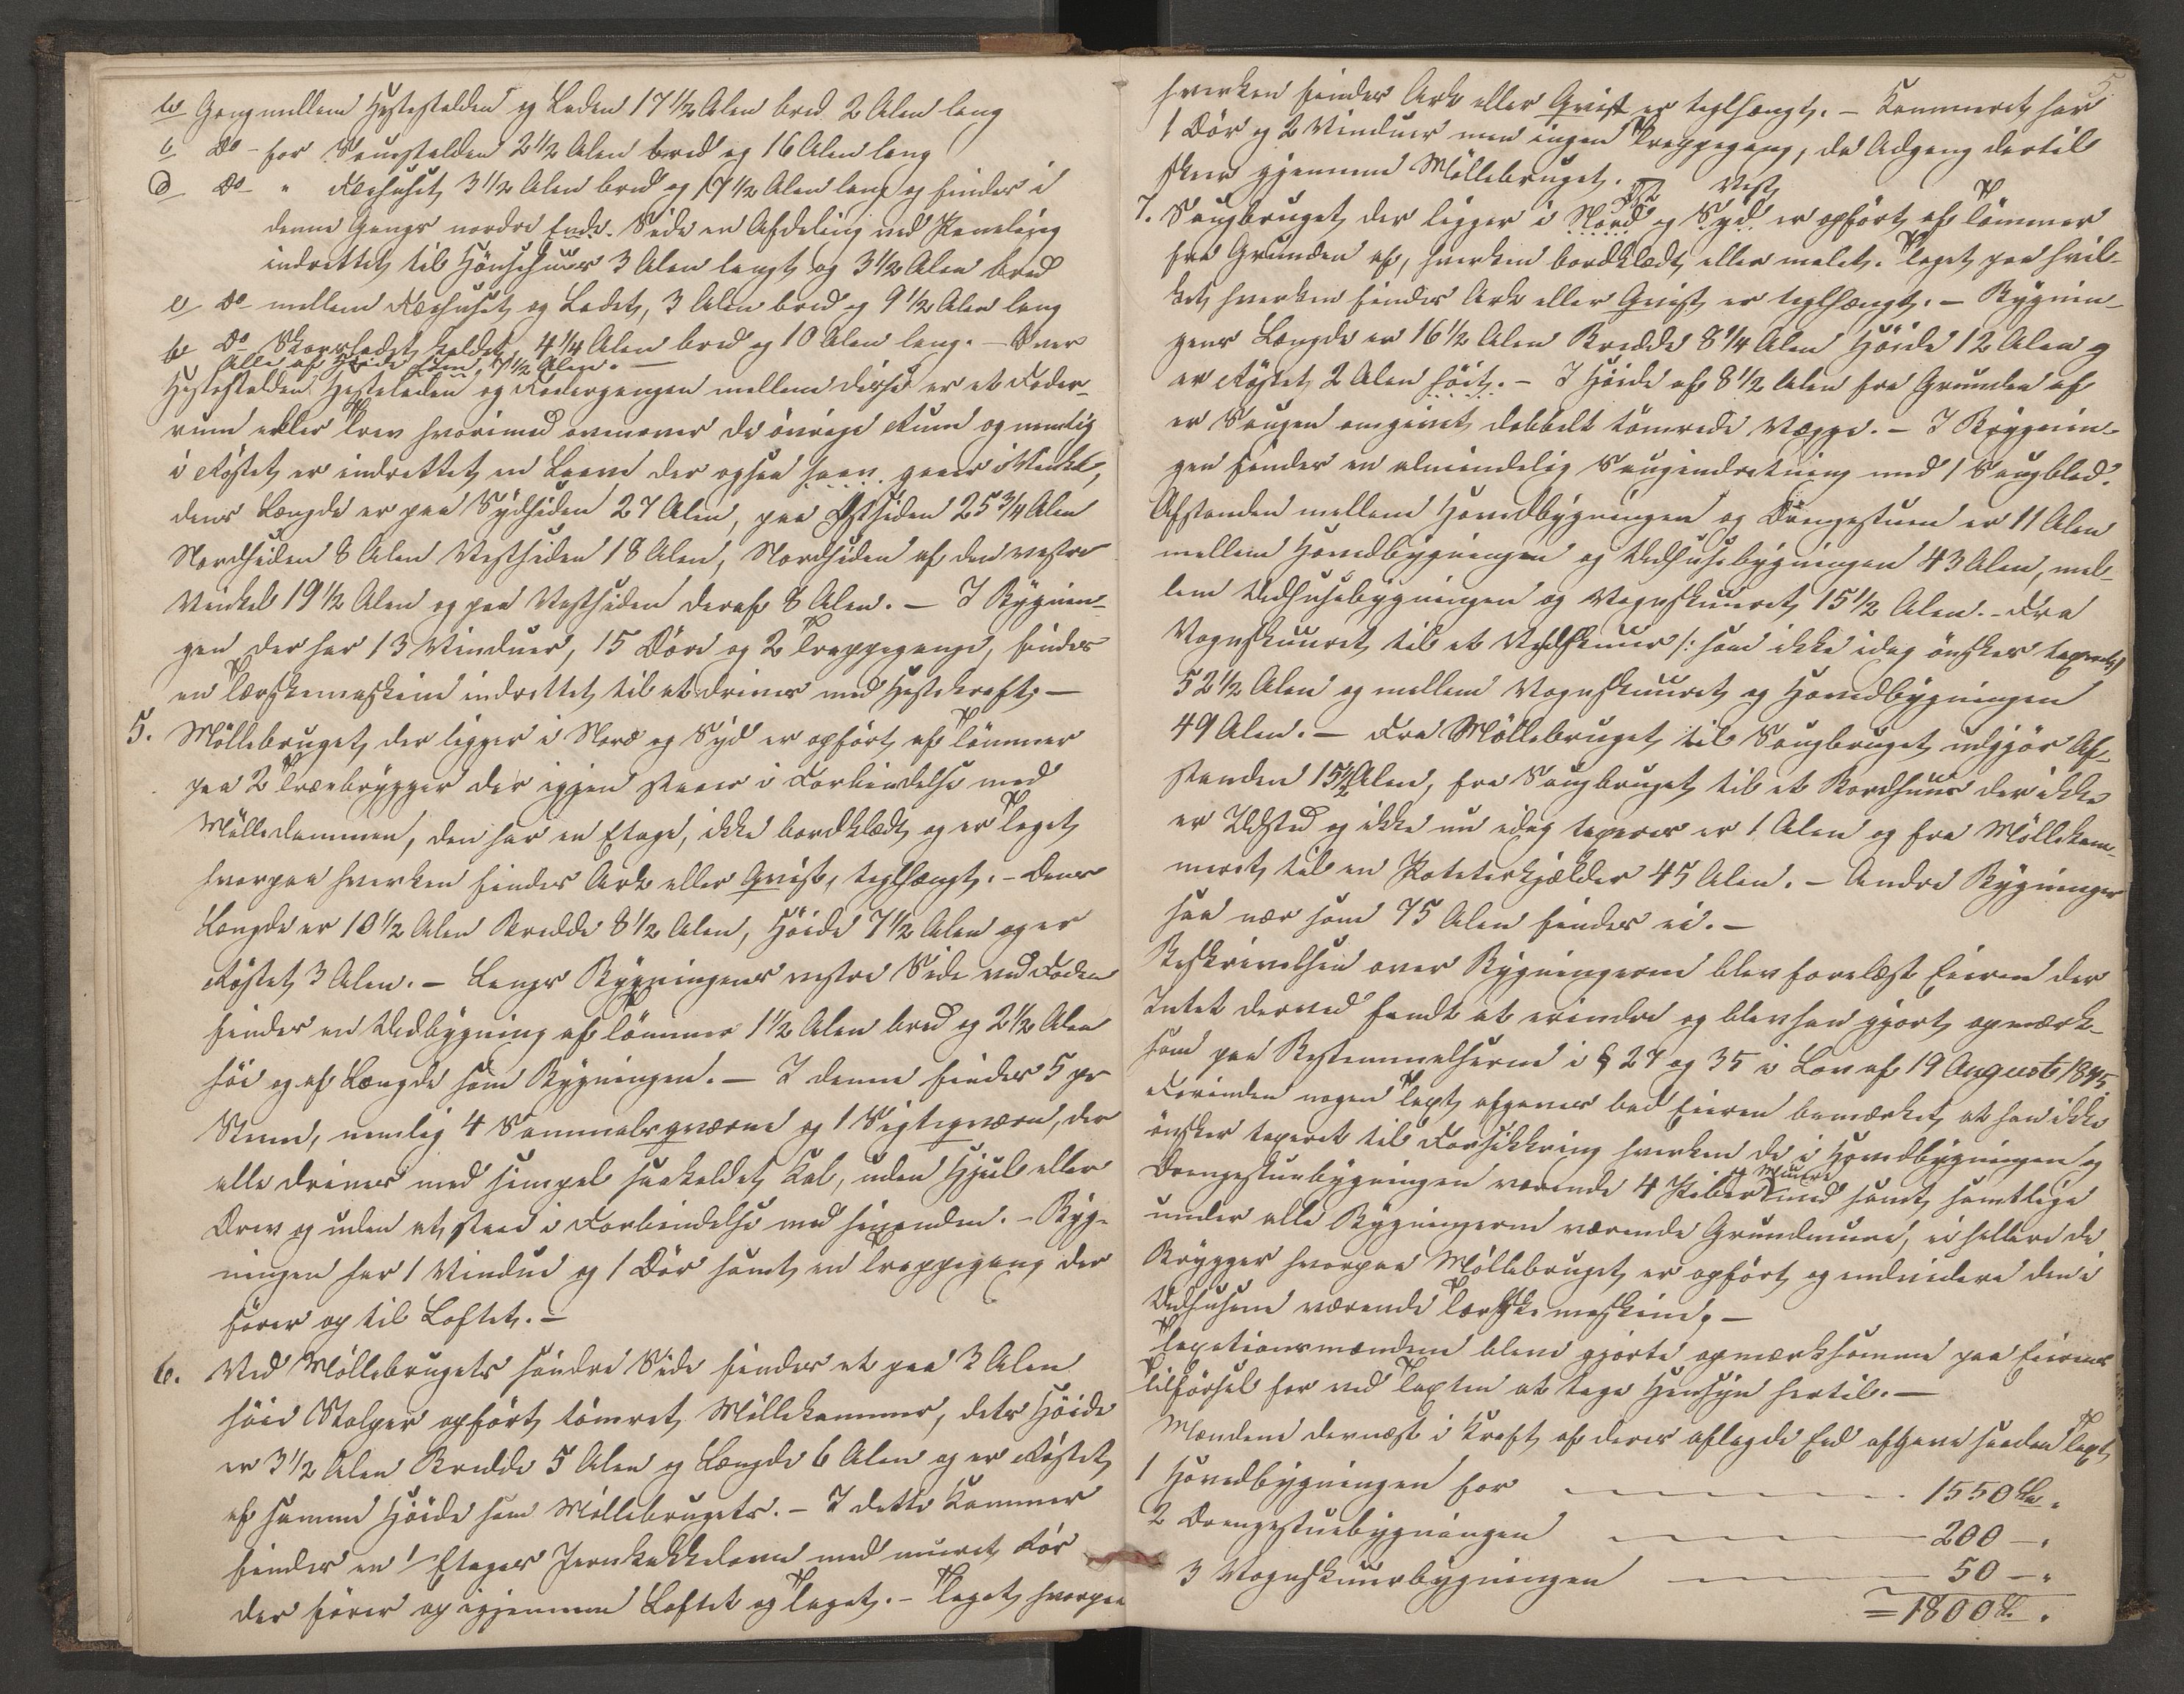 b Gang mellem Hestestalden og Laden 17 1/2 Alen bred 2 Alen lang
c Do - for Saugstalden 2 1/2 Alen bred og 16 Alen lang
d Do - " Fæhuset 3 1/2 Alen bred og 17 1/2 Alen lang og findes i
denne Gangs nordre Ende. Side en Afdeling med Paneling
indrettet til Hönsehuus 3 Alen langt og 3 1/2 Alen bred
e Do - mellem Fæhuset og Ladet, 3 Alen bred og 9 1/2 Alen lang
Do Skarvladet kaldet 4 1/4 Alen bred og 10 Alen lang. - Over
Alle af Höide som, 7 1/2 Alen. -
Hestestalden Hesteladen og Fodergangen mellem disse er et Foder-
rum eller Trev hvorimod ovenover de övrige Rum og nemlig
i Röstet er indrettet en Laave der ogsaa gaar i Vinkel,
dens Længde er paa Sydsiden 27 Alen, paa Östsiden 25 3/4 Alen
Nordsiden 8 Alen Vestsiden 18 Alen, Nordsiden af den vestre
Vinkel 19 1/2 Alen og paa Vestsiden deraf 8 Alen. - I Bygnin-
gen der har 13 Vinduer, 15 Döre og 2 Trappegange, findes
en Tærskemaskine indrettet til at drives med Hestekraft. -
5. Möllebruget der ligger i Nord og Syd er opfört af Tömmer
paa 2 Træebrygger der igjen staaer i Forbindelse med
Mölledammen, den har en Etage, ikke bordklædt og er Taget
hvorpaa hverken findes Ark eller Qvist, teglhængt. - Dens
Længde er 10 1/2 Alen Bredde 8 1/2 Alen, Höide 7 1/2 Alen og er
Röstet 3 Alen. - Langs Bygningens vestre Side ved Foden
findes en Udbygning af Tömmer 1 1/2 Alen bred og 2 1/2 Alen
höi og af Længde som Bygningen. - I denne findes 5 pr
Stene, nemlig 4 Sammalsqværne og 1 Sigteqværn, der
alle drives med simpel saakaldet Kal, uden Hjul eller
Drev og uden at staae i Forbindelse med hinanden. - Byg-
ningen har 1 Vindue og 1 Dör samt en Trappegang der
förer op til Loftet. -
6. Ved Möllebrugets söndre Side findes et paa 3 Alen
höie Stolper opfört tömret Möllekammer, dets Höide
er 3 1/2 Alen Bredde 5 Alen og Længde 6 Alen og er Röstet
af samme Höide som Möllebrugets. - I dette Kammer
findes en 1 Etages Jernkakkelovn med muret Rör
der förer op igjennem Loftet og Taget. - Taget hvorpaa
5
hverken findes Ark eller Qvist er teglhængt. - Kammeret har
1 Dör og 2 Vinduer men ingen Trappegang, da Adgang dertil
skeer gjennem Möllebruget.
Öst Vest
7. Saugbruget der ligger i Nord og Syd er opfört af Tömmer
fra Grunden af, hverken bordklædt eller malet. Taget paa hvil-
ket hverken findes Ark eller Qvist er teglhængt. - Bygnin-
gens Længde er 16 1/2 Alen Bredde 8 1/4 Alen Höide 12 Alen og
er Röstet 2 Alen höit. - I Höide af 8 1/2 Alen fra Grunden af
er Saugen omgivet dobbelt tömrede Vægge. - I Bygnin-
gen findes en almindelig Saugindretning med 1 Saugblad.
Afstanden mellem Hovedbygningen og Drengestuen er 11 Alen
mellem Hovedbygningen og Udhusbygningen 43 Alen, mel-
lem Udhusebygningen og Vognskuuret 15 1/2 Alen. - Fra
Vognskuuret til et Vedskuur /: som ikke idag önskes taxeret
52 1/2 Alen og mellem Vognskuuret og Hovedbygningen
49 Alen. - Fra Möllebruget til Saugbruget udgjör Af-
standen 15 1/2 Alen, fra Saugbruget til et Bordhuus der ikke
er Ildsted og ikke nu idag taxeres er 1 Alen og fra Möllekam-
meret til en Potetekjælder 45 Alen. - Andre Bygninger
saa nær som 75 Alen findes ei. -
Beskrivelsen over Bygningerne blev forelæst Eieren der
Intet derved fandt at erindre og blev han gjort opmærk-
som paa Bestemmelserne i § 27 og 35 i Lov af 19 August 1845
Forinden nogen Taxt afgaves bad Eieren bemærket at han ikke
önsker taxeret til Forsikkring hverken de i Hovedbygningen og
og Muure
Drengestuebygningen værende 4 Piber med samt samtlige
under alle Bygningerne værende Grundmure, ei heller de
Brygger hvorpaa Möllebruget er opfört og endvidere den i
Udhusene værende Tærskemaskine. -
Taxationsmændene bleve gjorte opmærksomme paa Eierens
Tilförsel for ved Taxten at tage Hensyn hertil. -
Mændene dernæst i Kraft af deres aflagde Eed afgave saadan Taxt
1 Hovedbygningen for 1550 Sp. "
2 Drengestuebygningen 200 - "
3 Vognskuurbygningen 50 - "
= 1800 Sp. "